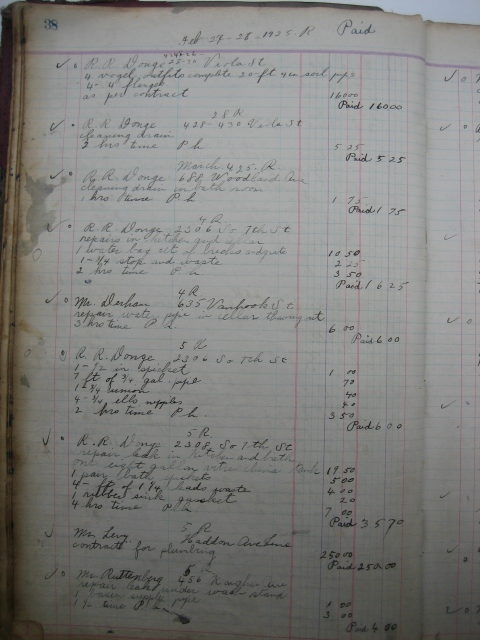 38
Feb 27-28-1925. R Paid
R. R. Donge Viola St
4 vogel outfits complete 20-ft 4 in soil pipe
4-4 flanges
as per contract 16000
Paid 16000
28 R
R. R. Donge 428-430 Viola St
cleaning drain
3 hrs time P h 5 25
Paid 5 25
March 4 25. R
R. R. Donge 688 Woodland Ave
cleaning drain in bath room
1 hrs time P h 1 75
Paid 1 75
4 R
R. R. Donge 2306 So 7th St
repairs in kitchen and cellar
1 water bag set of bricks 10 50
1-3/4 stop and waste 2 25
2 hrs time P h 3 50
Paid 1 6 25
4 R
Mr. Derham 635 Vanhook St
repair water pipe in cellar thawing it
3 hrs time P h 6 00
Paid 6 00
5 R
R. R. Donge 2306 So 7th St
1-1/2 in spicket 1 00
7 ft of 3/4 gal. pipe 70
1-3/4 union 40
4-3/4 ells nipples 40
2 hrs time P h. 3 50
Paid 6 00
5 R
R. R. Donge 2308 So 7th St
repair leak in kitchen and bath
one eight gallon tank 19 50
1 pair bath spickets 5 00
4-ft of 1 1/4 leads waste 4 00
1 rubber sink gasket 20
4 hrs time P h 7 00
Paid 35 70
5 R
Mr. Levy Haddon Avenue
contracts for plumbing 250 00
Paid 250.00
Mr. Ruttenberg 456 Kaighn Ave
repair leak under wash stand
1 basin supply pipe 1 00
1 1/2 time P h 3 00
Paid 4 00